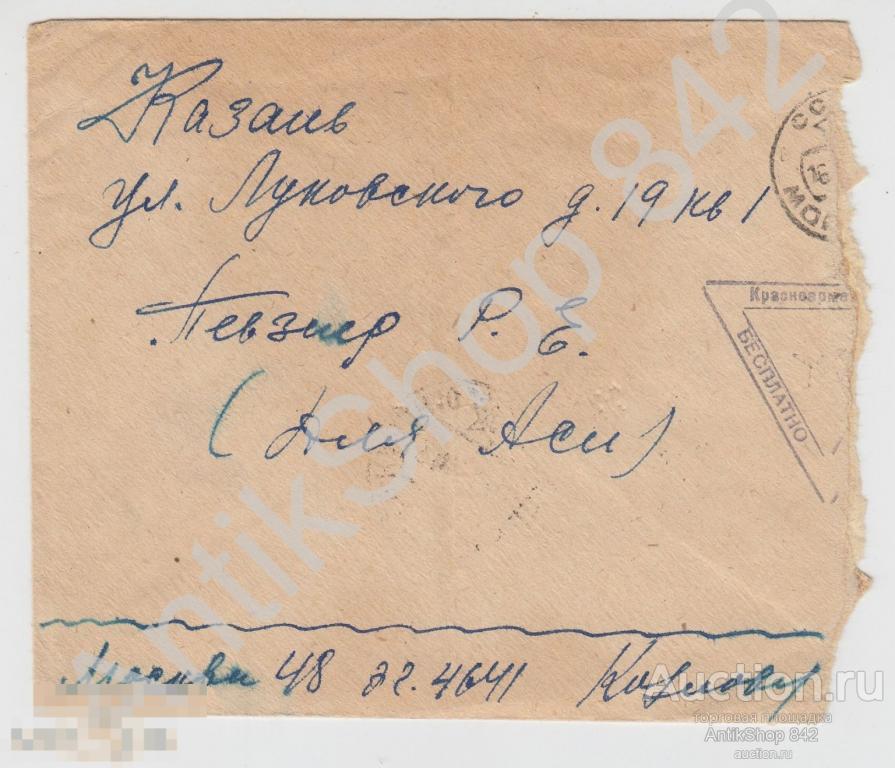 Казань
ул. Луковского д. 19 кв 1
Певзнер Р. Е.
(Для Аси)
Москва 48 эг. 4641 Козлову
СС
МОС
Красноарме
БЕСПЛАТНО
AntikShop 842
Auction.ru
торговая площадка
AntikShop 842
auction.ru